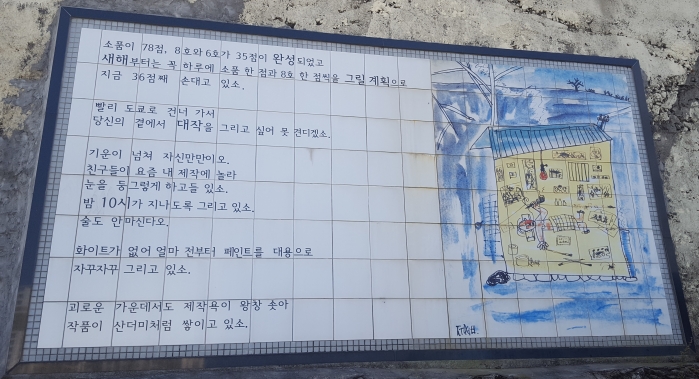 소품이 78점, 8호와 6호가 35점이 완성되었고
새해부터는 꼭 하루에 소품 한 점과 8호 한 점씩을 그릴 계획으로
지금 36점째 손대고 있소.
빨리 도쿄로 건너 가서
당신의 곁에서 대작을 그리고 싶어 못 견디겠소.
기운이 넘쳐 자신만만이오.
친구들이 요즘 내 제작에 놀라
눈을 둥그렇게 하고들 있소.
밤 10시가 지나도록 그리고 있소.
술도 안 마신다오.
화이트가 없어 얼마 전부터 페인트를 대용으로
자꾸자꾸 그리고 있소.
괴로운 가운데서도 제작욕이 왕창 솟아
작품이 산더미처럼 쌓이고 있소.